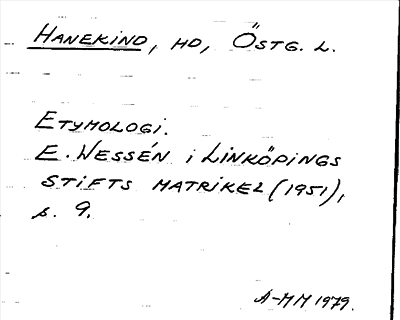 HANEKIND, HD, ÖSTG. L.
ETYMOLOGI.
E. WESSÉN i LINKÖPINGS
STIFTS MATRIKEL (1951),
s. 9.
A-MM 1979.